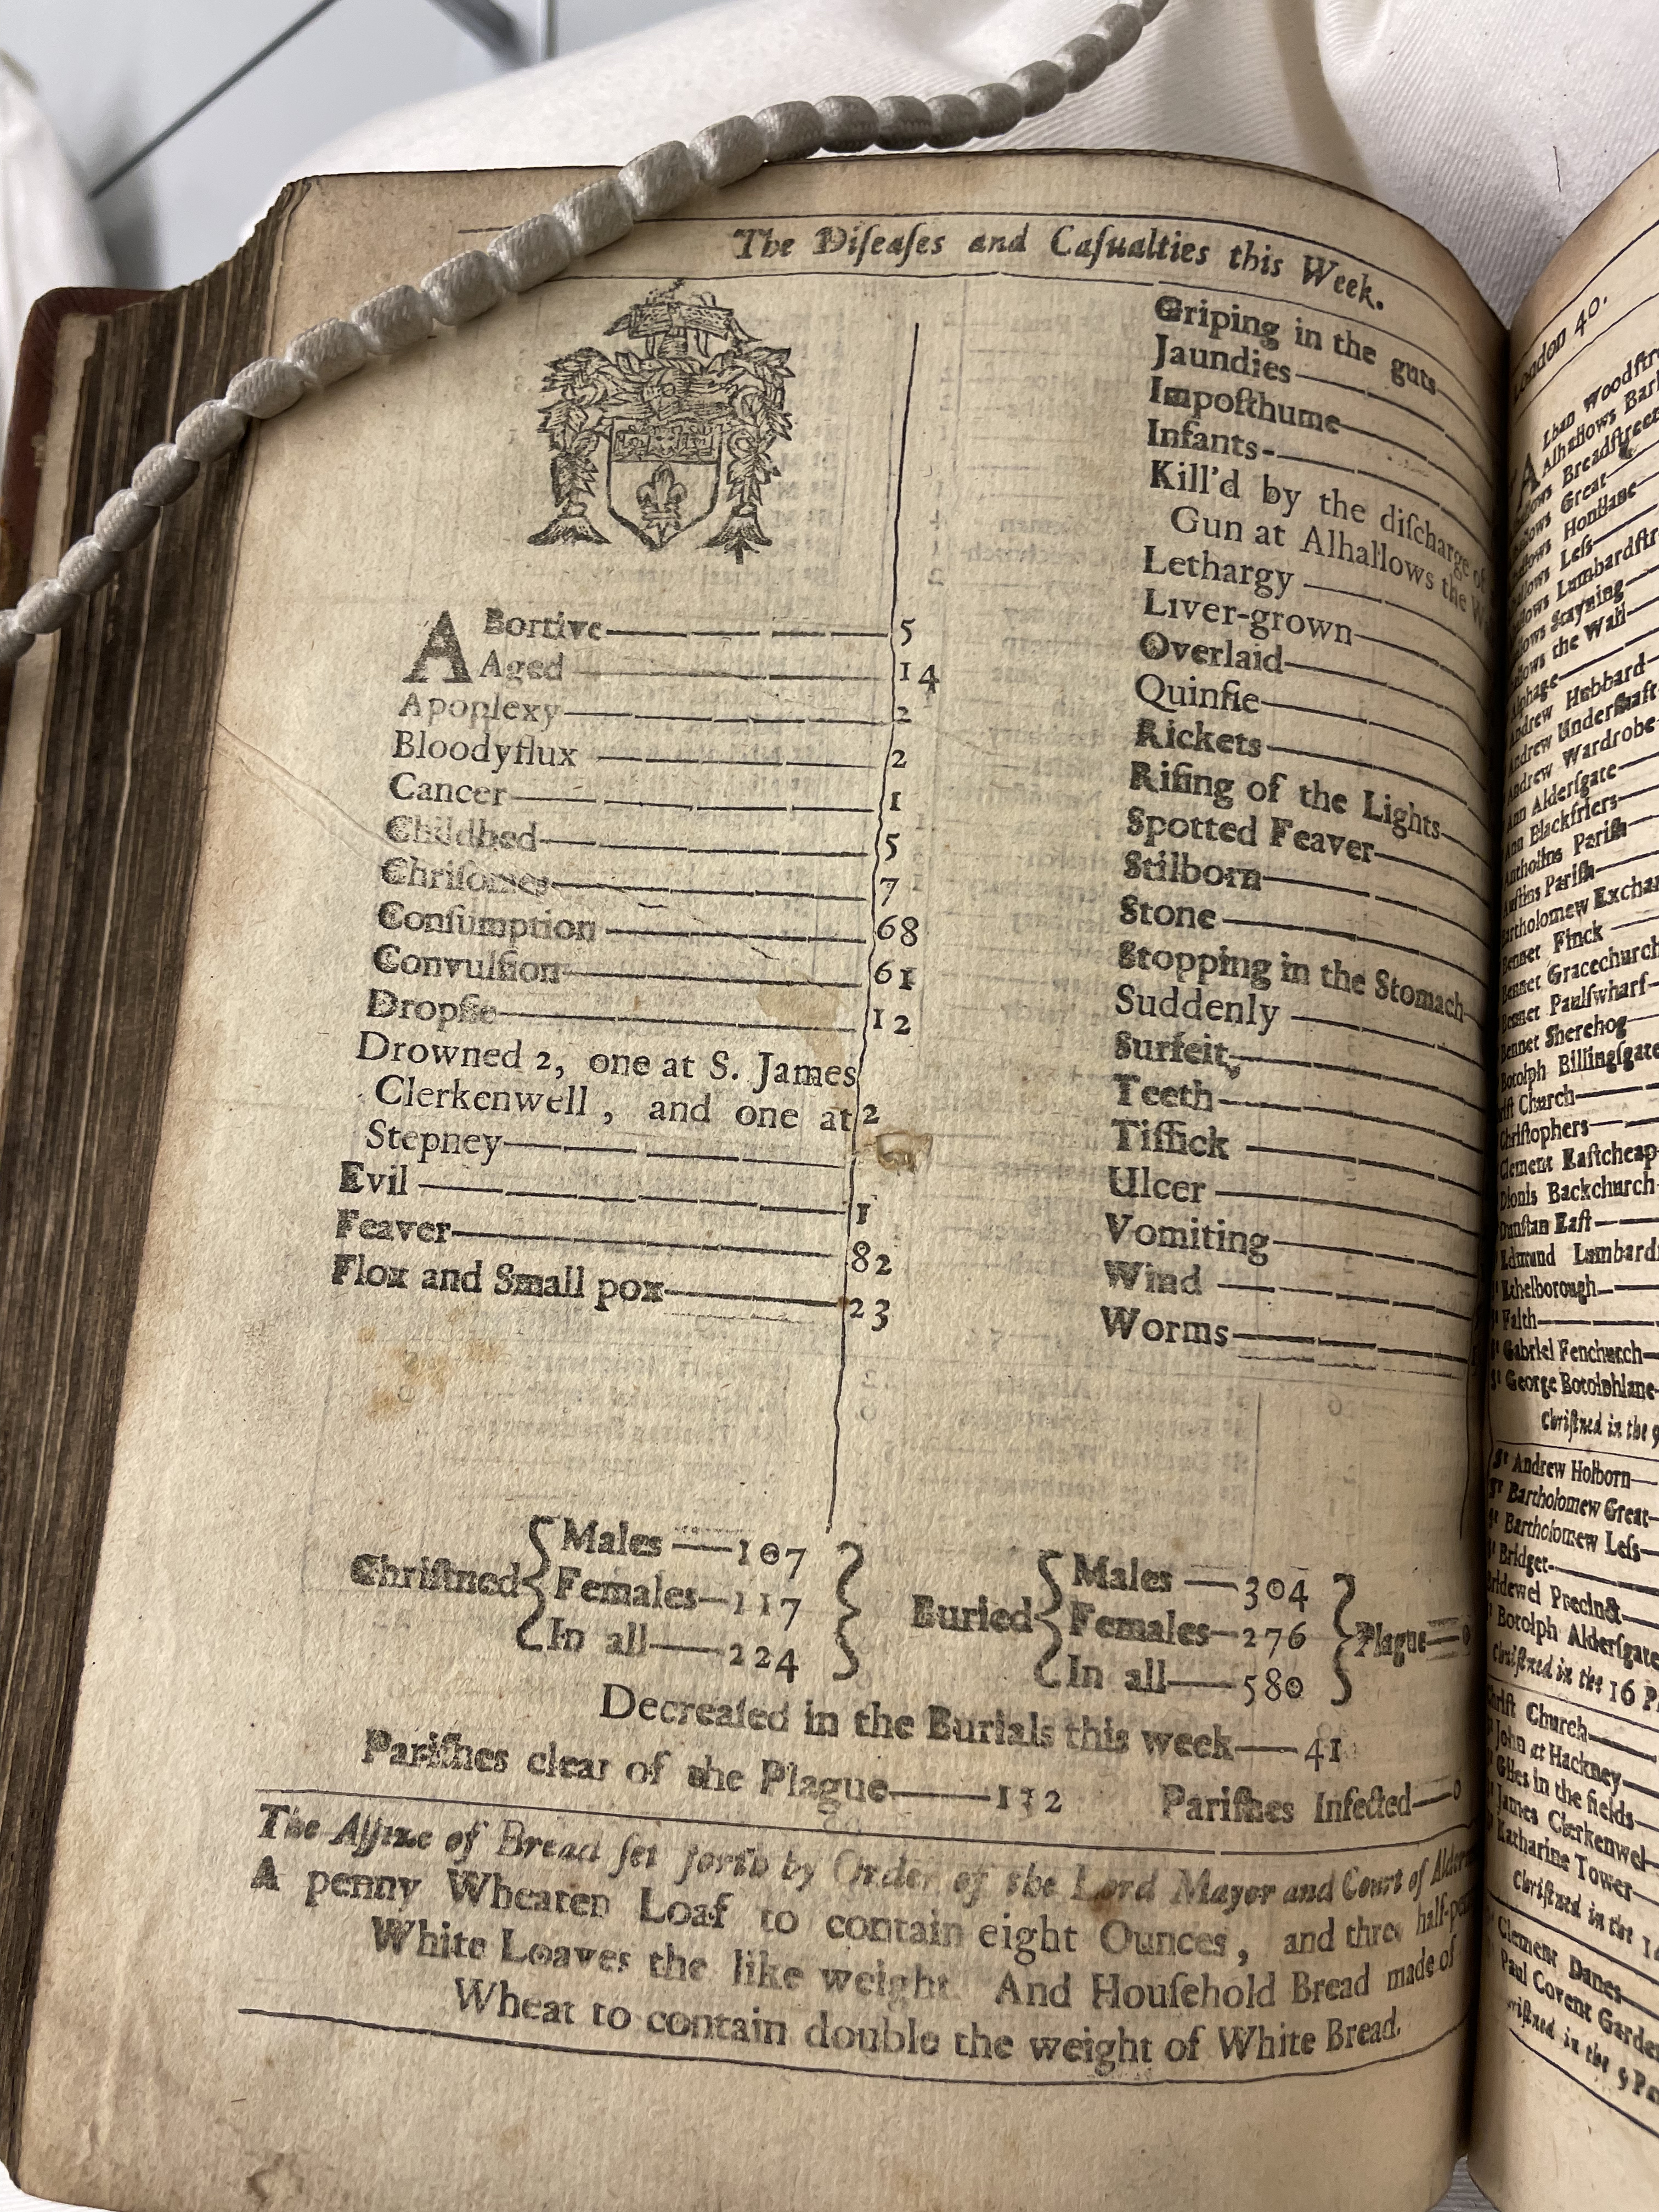 The Diſeaſes and Caſualties this Week.
ABortive 5
Aged 14
Apoplexy 2
Bloodyflux 2
Cancer 1
Childbed 5
Chriſomes 7
Conſumption 68
Convulſion 61
Dropſie 12
Drowned 2, one at S. James
Clerkenwell, and one at 2
Stepney
Evil 1
Feaver 82
Flox and Small pox 23
Griping in the guts
Jaundies
Impoſthume
Infants
Kill'd by the diſcharge of
Gun at Alhallows the
Lethargy
Liver-grown
Overlaid
Quinſie
Rickets
Riſing of the Lights
Spotted Feaver
Stilborn
Stone
Stopping in the Stomach
Suddenly
Surfeit
Teeth
Tiſſick
Ulcer
Vomiting
Wind
Worms
Chriſtned
Males 107
Females 117
In all 224
Buried
Males 304
Females 276
In all 580
Plague 0
Decreaſed in the Burials this week 41
Pariſhes clear of the Plague 132 Pariſhes Infected 0
The Aſſize of Bread ſet forth by Order of the Lord Mayor and Court of
A penny Wheaten Loaf to contain eight Ounces, and three
White Loaves the like weight. And Houſehold Bread made of
Wheat to contain double the weight of White Bread.
London 40.
Lban Woodſtre
Alhallows Bar
Breadſtreet
Great
Honilane
Leſs
Lumbardſtr
Stayning
the Wall
Alphage
Andrew Hubbard
Andrew Underſhaft
Andrew Wardrobe
Ann Alderſgate
Ann Blackfriers
Pariſh
Pariſh
Bartholomew Exchan
Bennet Finck
Bennet Gracechurch
Bennet Paulſwharf
Bennet Sherehog
Botolph Billingſgate
Church
Chriſtophers
Clement Eaſtcheap
Dionis Backchurch
Dunſtan Eaſt
Edmund Lumbard
Ethelborough
Faith
Gabriel Fenchurch
George Botolphlane
Chriſtned in the 9
Sᵗ Andrew Holborn
Bartholomew Great
Bartholomew Leſs
Bridget
Bridewel Precinct
Botolph Alderſgate
Chriſtned in the 16 P
Chriſt Church
John at Hackney
Giles in the fields
James Clerkenwel
Katharine Tower
Chriſtned in the 1
Clement Danes
Paul Covent Garden
in the 5 Pa